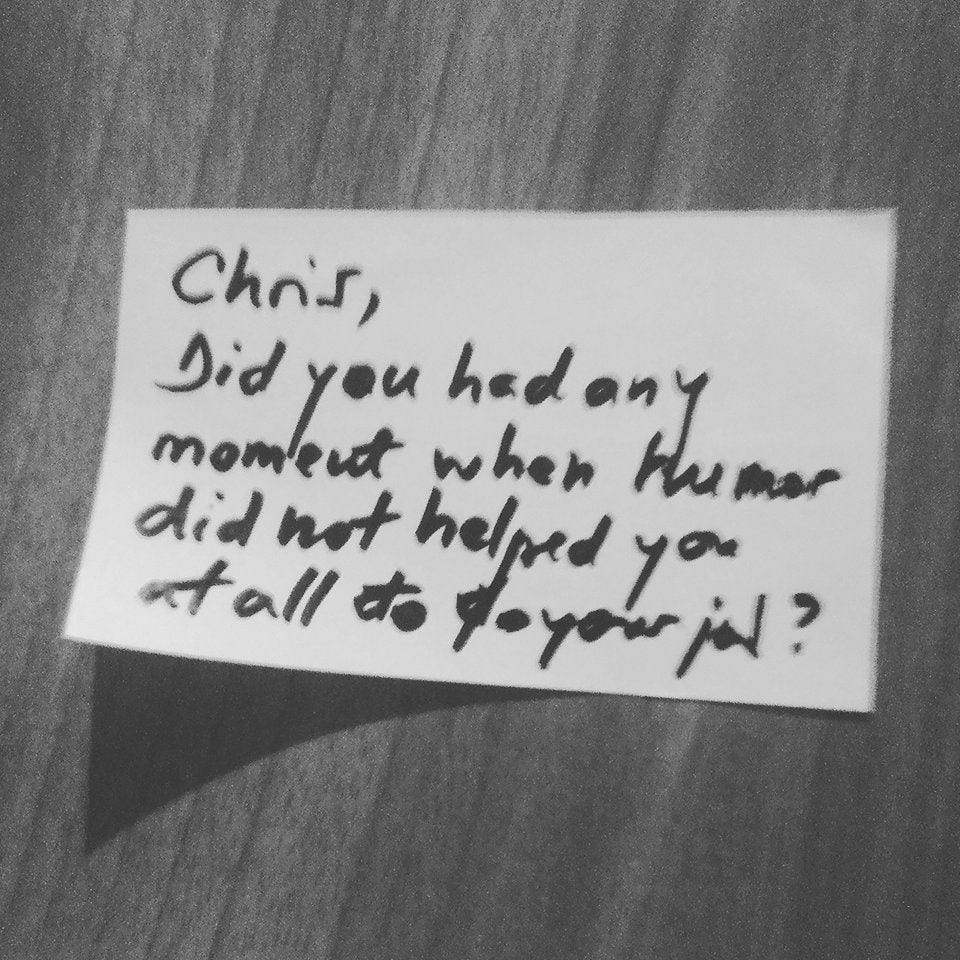 Chris,
Did you had any
moment when humor
did not helped you
at all to do your job?